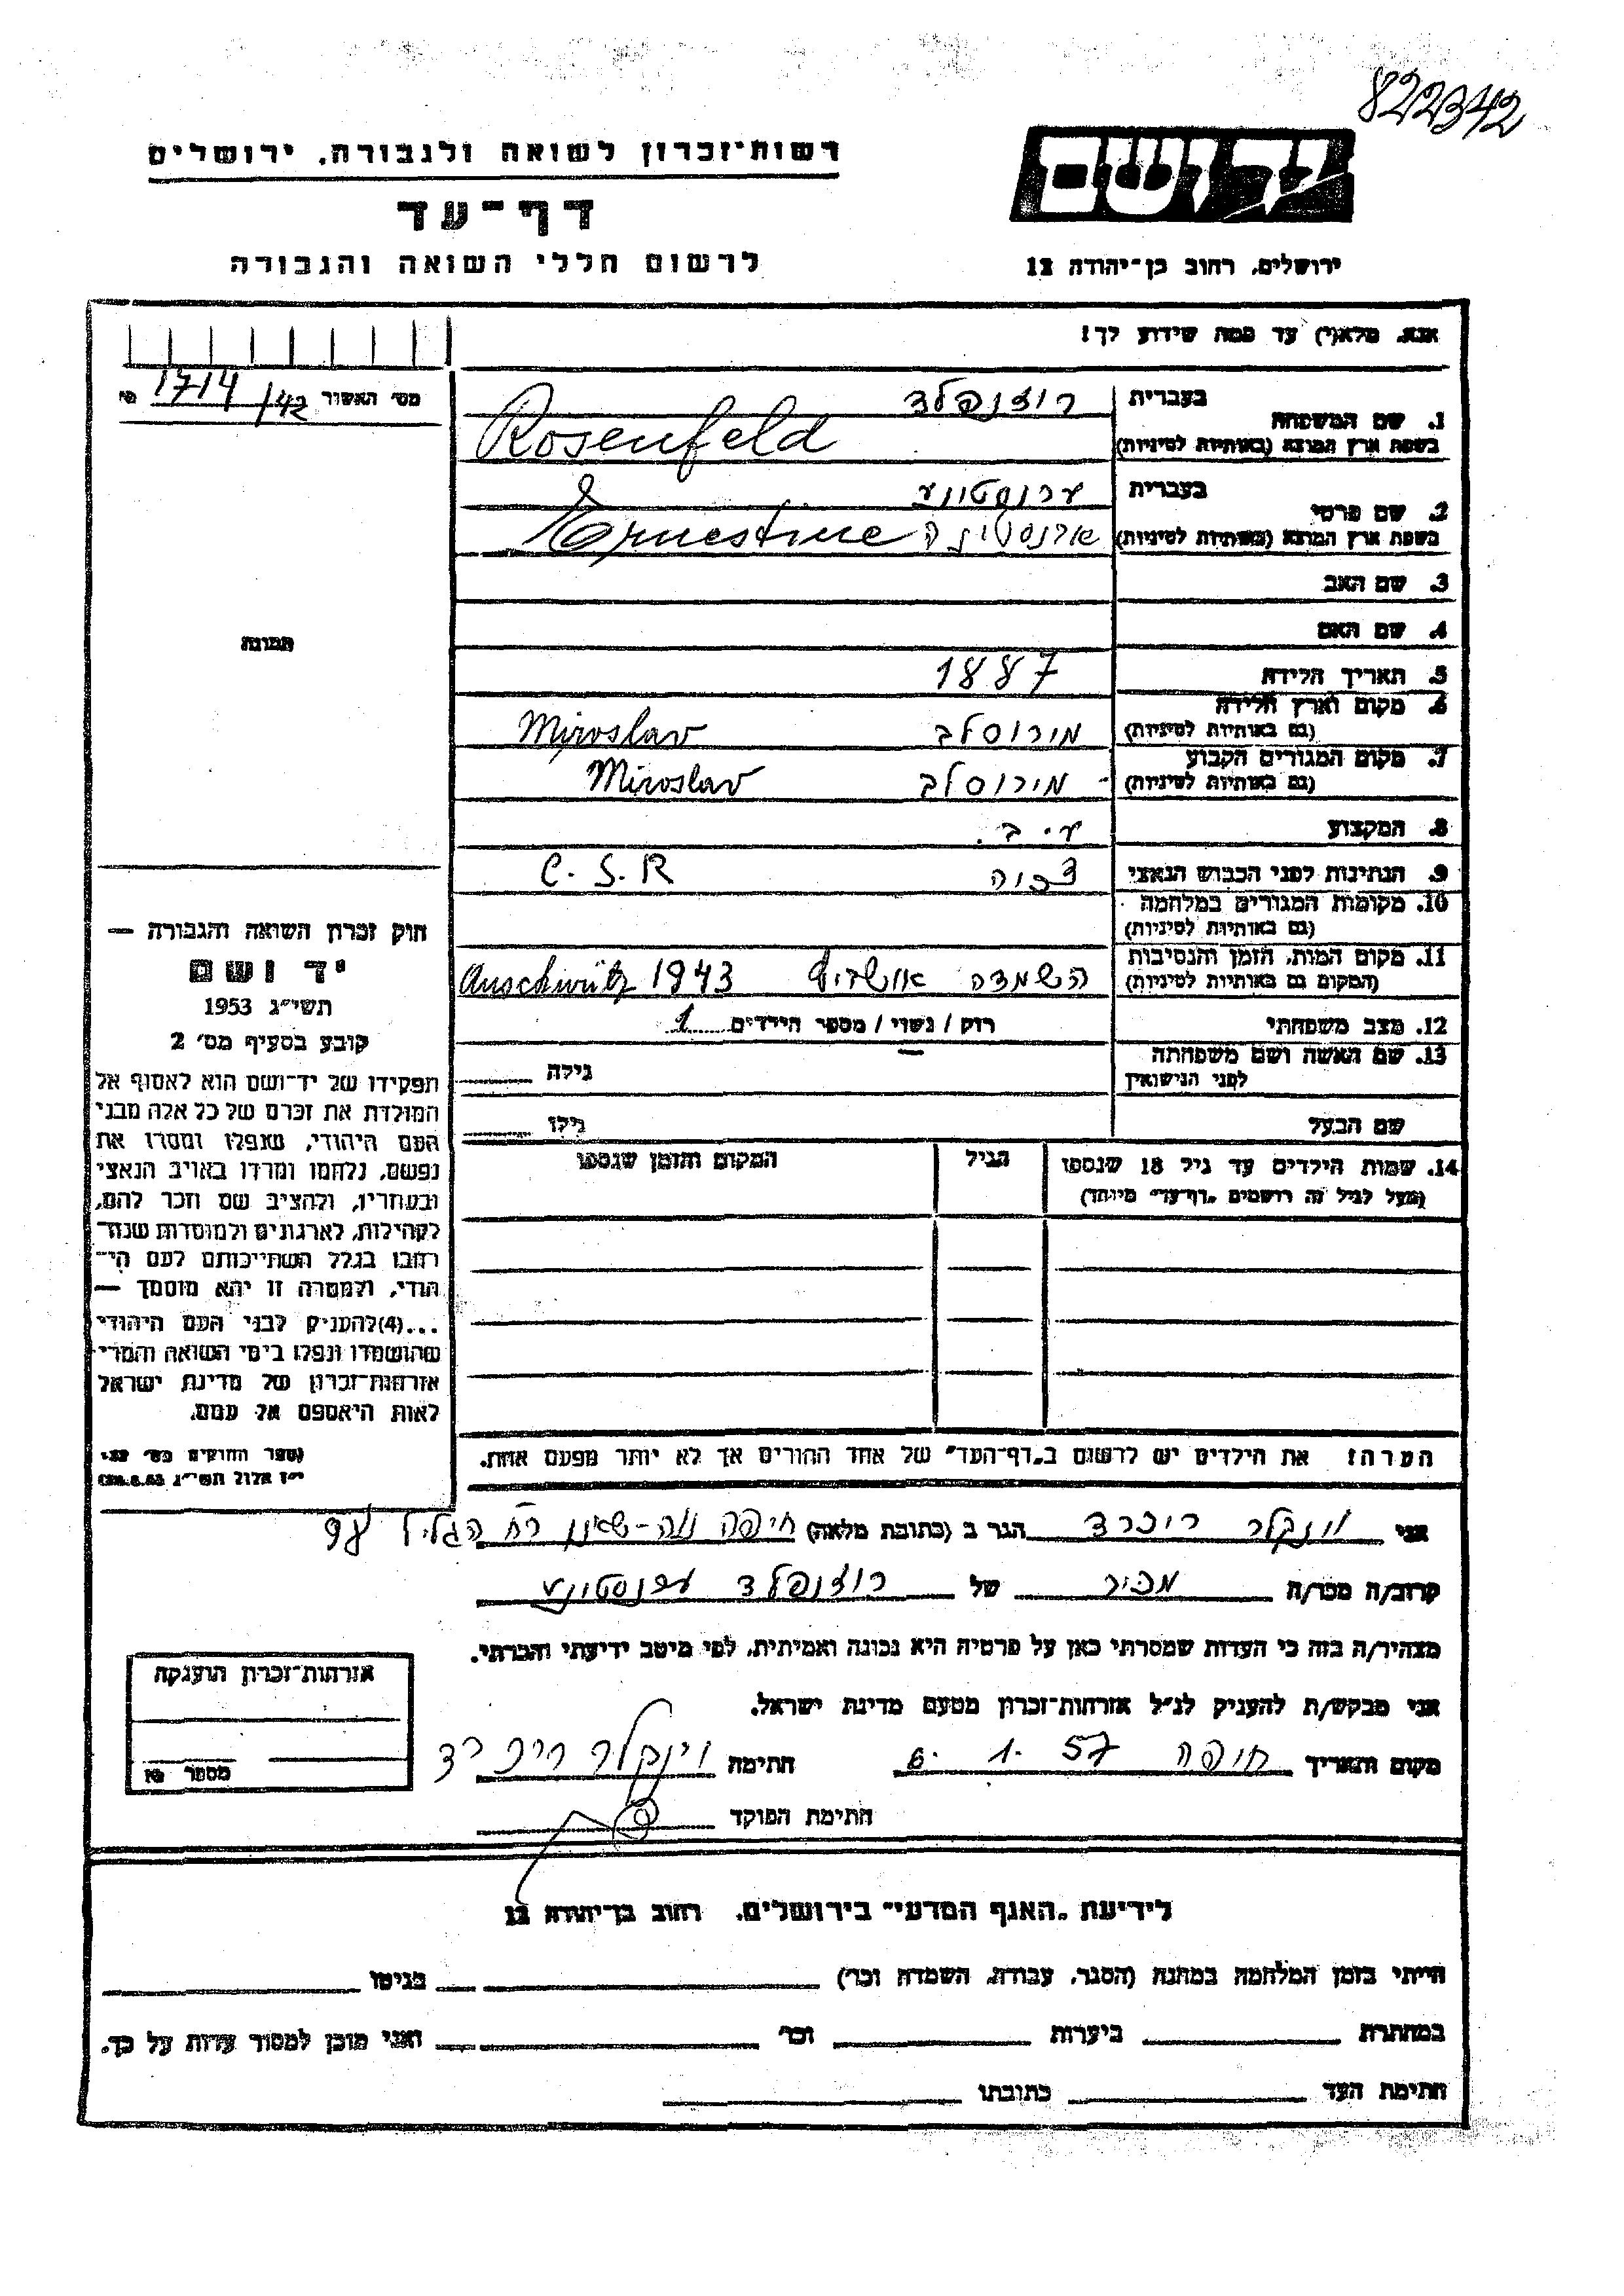 822342
רשות־זכרון לשואה ולגבורה, ירושלים
יד ושם
דף־עד
לרשום חללי השואה והגבורה
ירושלים, רחוב בן־יהודה 12
אנא, מלא(י) עד כמה שידוע לך!
מס׳ האשור 1714/42
1. שם המשפחה בעברית רוזנפלד
בשפת ארץ המוצא (באותיות לטיניות) Rosenfeld
2. שם פרטי בעברית ערנסטינע
בשפת ארץ המוצא (באותיות לטיניות) ארנסטינה Ernestine
3. שם האב
4. שם האם
תמונה
5. תאריך הלידה 1887
6. מקום וארץ הלידה (גם באותיות לטיניות) מירוסלב Miroslav
7. מקום המגורים הקבוע (גם באותיות לטיניות) מירוסלב Miroslav
8. המקצוע ע. ב.
9. הנתינות לפני הכבוש הנאצי צכיה C. S. R
10. מקומות המגורים במלחמה (גם באותיות לטיניות)
11. מקום המות, הזמן והנסיבות (המקום גם באותיות לטיניות) השמדה אושויץ Auschwitz 1943
12. מצב משפחתי רוק / נשוי / מספר הילדים 1
13. שם האשה ושם משפחתה לפני הנישואין גילה
שם הבעל גילו
14. שמות הילדים עד גיל 18 שנספו הגיל המקום והזמן שנספו
(מעל לגיל זה רושמים „דף־עד״ מיוחד)
חוק זכרון השואה והגבורה —
יד ושם
תשי״ג 1953
קובע בסעיף מס׳ 2
תפקידו של יד־ושם הוא לאסוף אל
המולדת את זכרם של כל אלה מבני
העם היהודי, שנפלו ומסרו את
נפשם, נלחמו ומרדו באויב הנאצי
ובעוזריו, ולהציב שם וזכר להם,
לקהילות, לארגונים ולמוסדות שנח־
רבו בגלל השתייכותם לעם הי־
הודי, ולמטרה זו יהא מוסמך —
...(4) להעניק לבני העם היהודי
שהושמדו ונפלו בימי השואה והמרי
אזרחות־זכרון של מדינת ישראל
לאות היאספם אל עמם.
(ספר החוקים מס׳
י״ז אלול תשי״ג
הערה: את הילדים יש לרשום ב„דף־העד״ של אחד ההורים אך לא יותר מפעם אחת.
אני וינקלר ריכרד הגר ב (כתובת מלאה) חיפה נוה-שאנן רח׳ הגליל
קרוב/ה מכר/ה מכיר של רוזנפלד ערנסטינע
מצהיר/ה בזה כי העדות שמסרתי כאן על פרטיה היא נכונה ואמיתית, לפי מיטב ידיעתי והכרתי.
אני מבקש/ת להעניק לנ״ל אזרחות־זכרון מטעם מדינת ישראל.
מקום ותאריך חיפה 6. 1. 57 חתימה וינקלר ריכרד
חתימת הפוקד
אזרחות־זכרון הוענקה
מספר
לידיעת „האגף המדעי״ בירושלים, רחוב בן־יהודה 12
הייתי בזמן המלחמה במחנה (הסגר, עבודה, השמדה וכו׳) בגיטו
במחתרת ביערות וכו׳ ואני מוכן למסור עדות על כך.
חתימת העד כתובתו